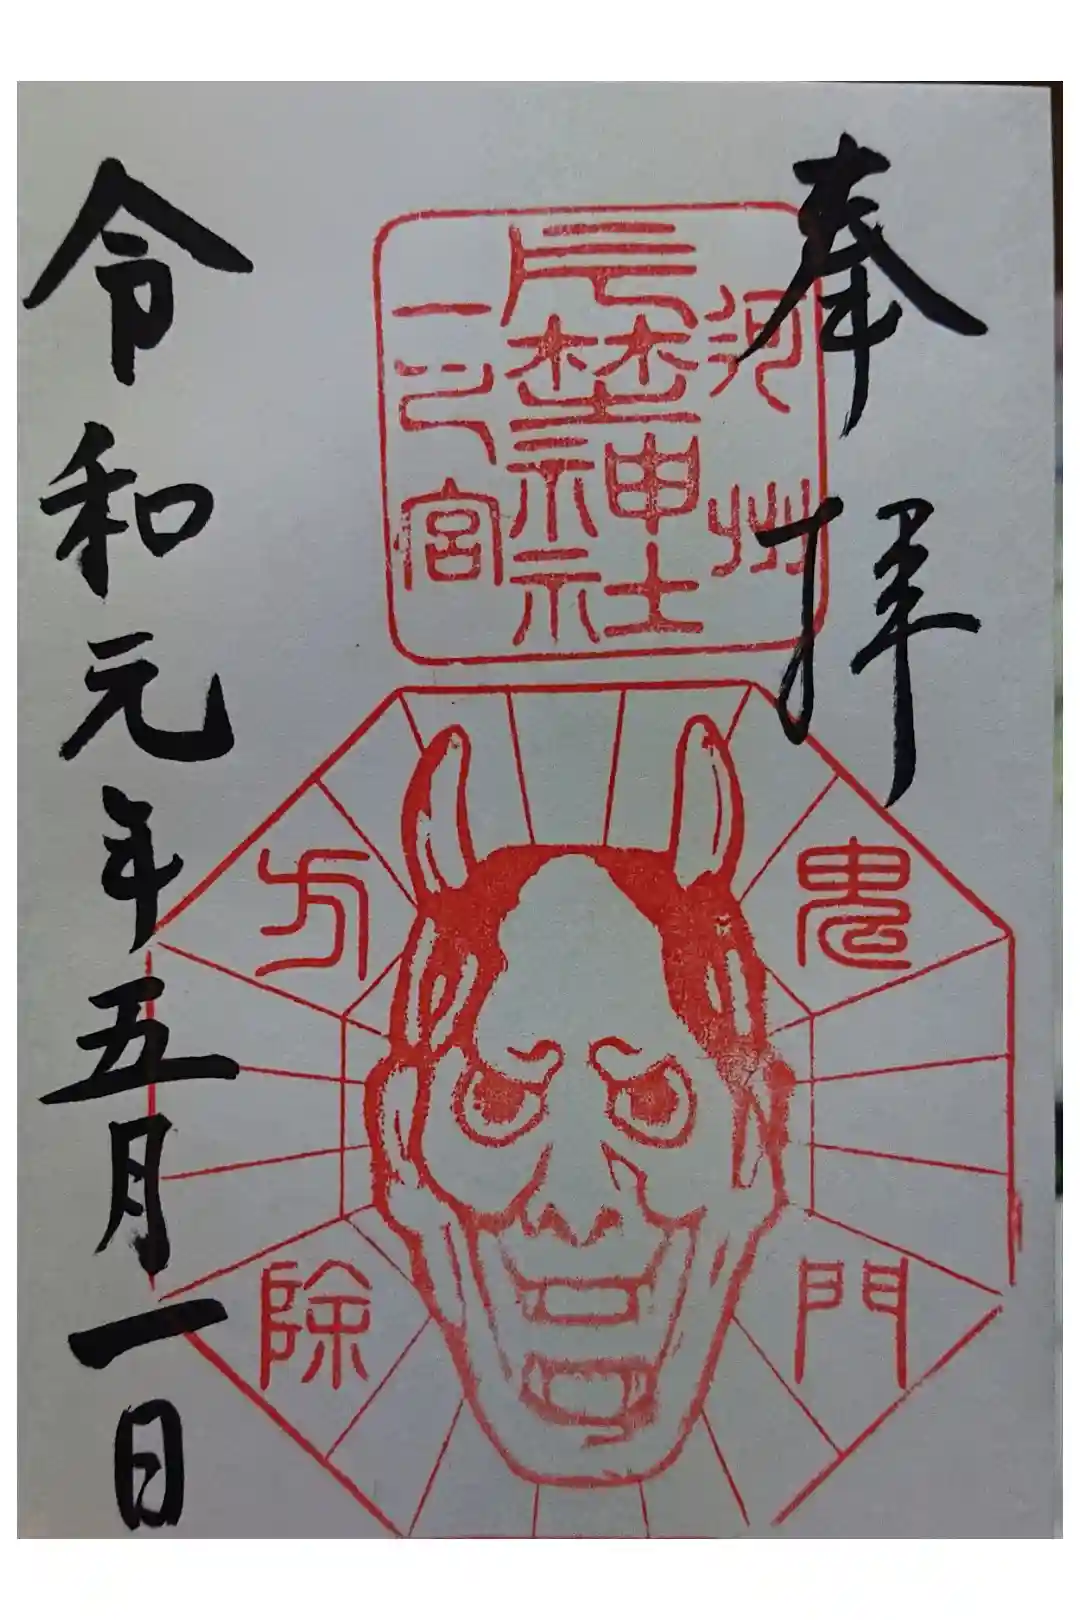 奉拝
河州
片埜神社
一之宮
鬼門
方除
令和元年五月一日